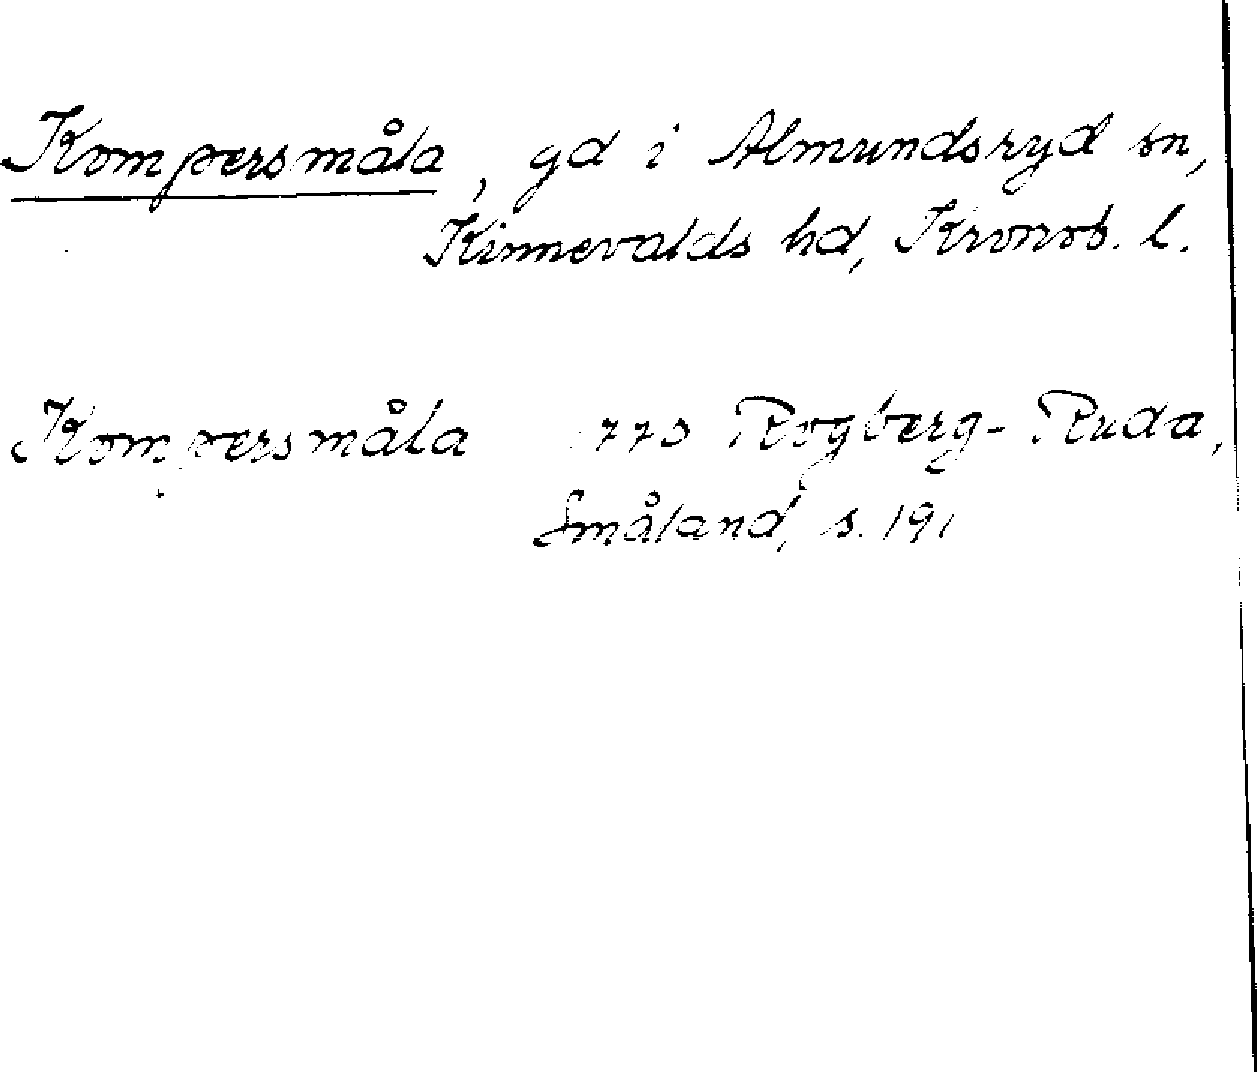 Kompersmåla, gd i Almundsryd sn,
Kinnevalds hd, Kronob. l.
Kompersmåla 1770 Rogberg-Ruda,
Småland, s. 191